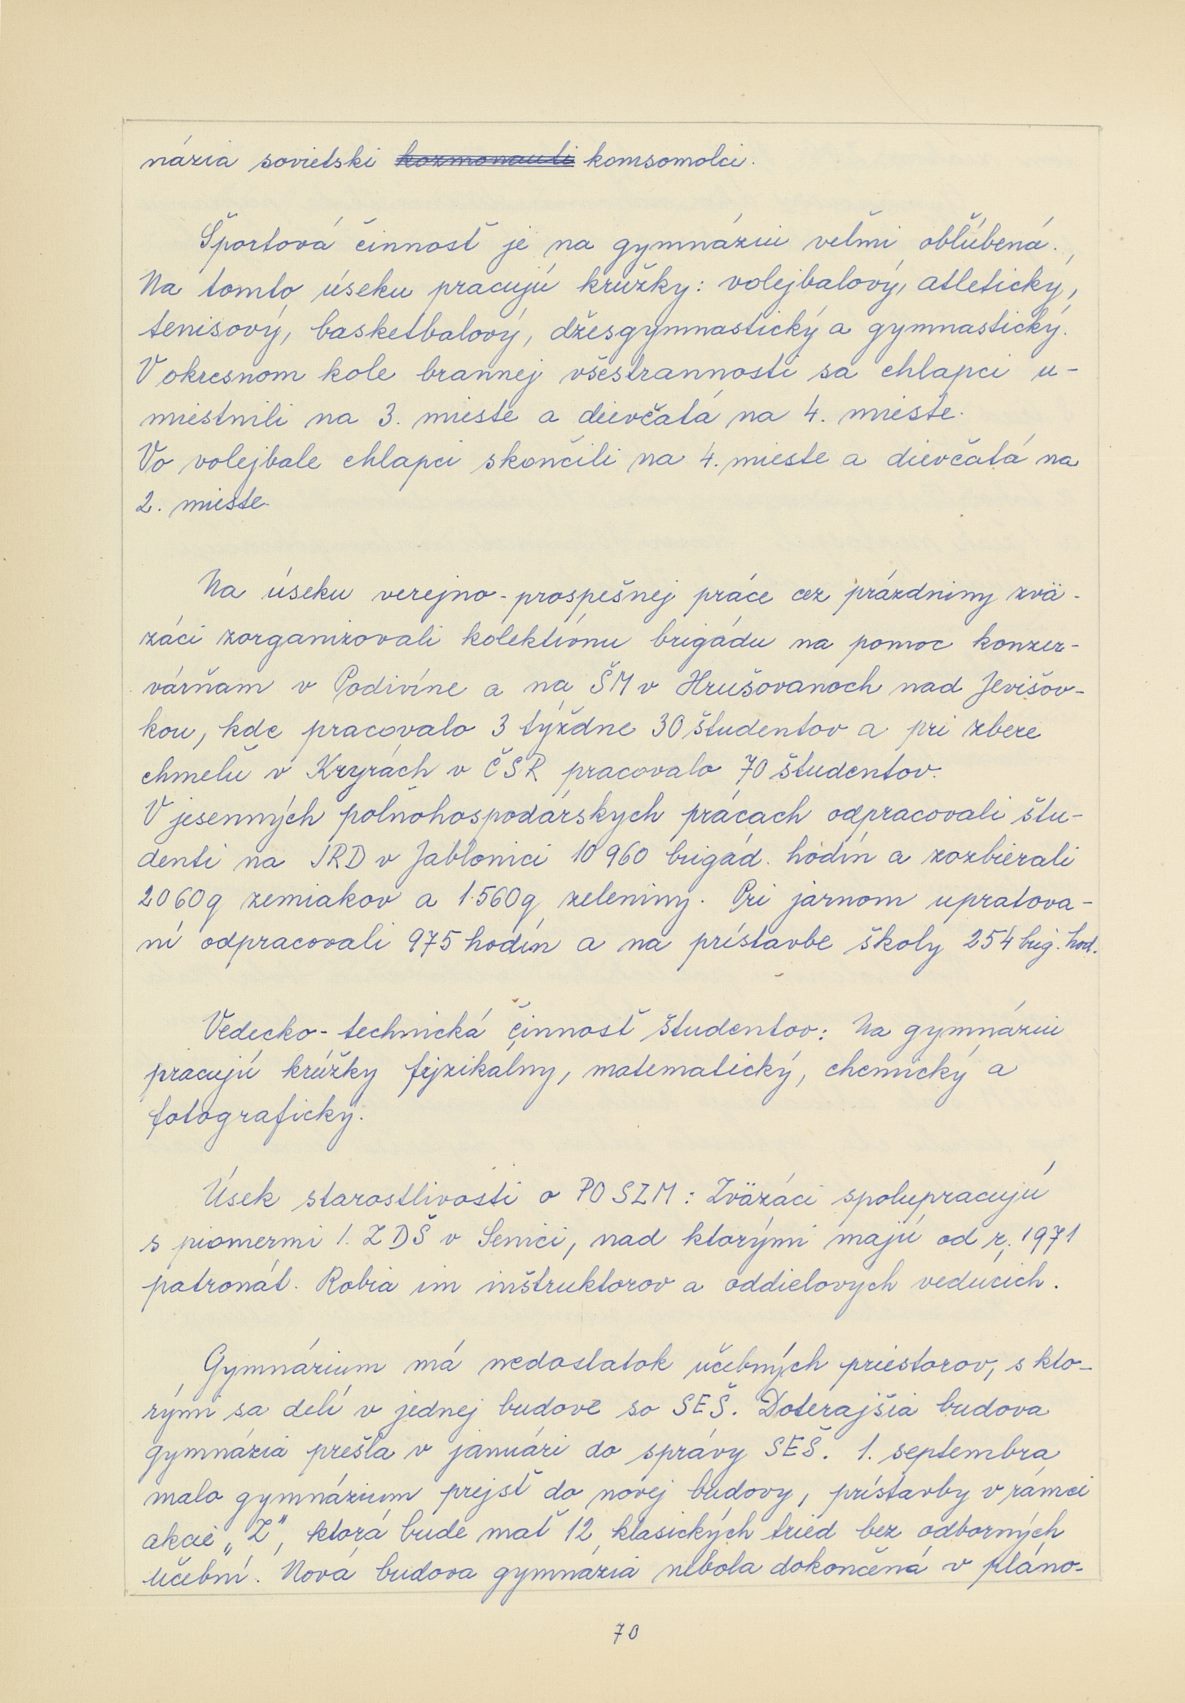 názia sovietski kozmonauti komsomolci.
Športová činnosť je na gymnáziu veľmi obľúbená.
Na tomto úseku pracujú krúžky: volejbalový, atletický,
tenisový, basketbalový, džesgymnastický a gymnastický.
V okresnom kole brannej všestrannosti sa chlapci u-
miestnili na 3. mieste a dievčatá na 4. mieste.
Vo volejbale chlapci skončili na 4. mieste a dievčatá na
2. mieste.
Na úseku verejno-prospešnej práce cez prázdniny zvä-
záci zorganizovali kolektívnu brigádu na pomoc konzer-
várňam v Podivíne a na ŠM v Hrušovanoch nad Jevišov-
kou, kde pracovalo 3 týždne 30 študentov a pri zbere
chmeľu v Kryrách v ČSR pracovalo 70 študentov.
V jesenných poľnohospodárskych prácach odpracovali štu-
denti na JRD v Jablonici 10 960 brigád. hodín a zozbierali
2060q zemiakov a 1.560q zeleniny. Pri jarnom upratova-
ní odpracovali 975 hodín a na prístavbe školy 254 brig. hod.
Vedecko-technická činnosť študentov: Na gymnáziu
pracujú krúžky fyzikálny, matematický, chemický a
fotografický.
Úsek starostlivosti o PO SZM: Zväzáci spolupracujú
s pioniermi 1. ZDŠ v Senici, nad ktorými majú od r. 1971
patronát. Robia im inštruktorov a oddielových vedúcich.
Gymnázium má nedostatok učebných priestorov, s kto-
rými sa delí v jednej budove so SEŠ. Doterajšia budova
gymnázia prešla v januári do správy SEŠ. 1. septembra
malo gymnázium prejsť do novej budovy, prístavby v rámci
akcie „Z", ktorá bude mať 12 klasických tried bez odborných
učební. Nová budova gymnázia nebola dokončená v pláno-
70